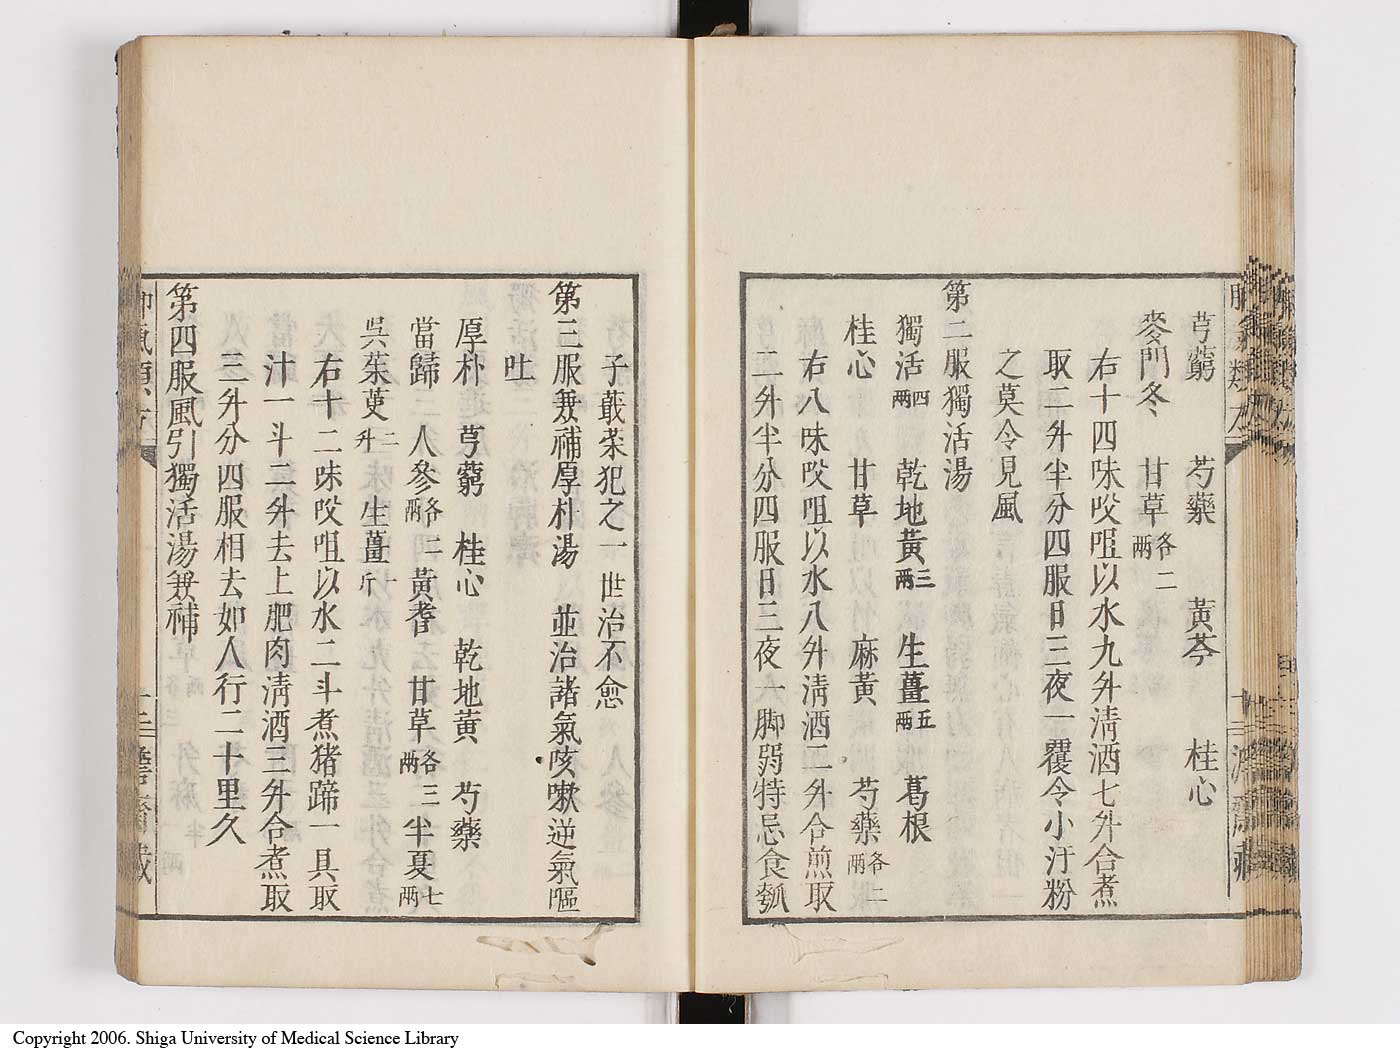 芎藭　芍藥　黃芩　桂心
麥門冬　甘草各二兩
右十四味㕮咀以水九升淸酒七升合煮
取二升半分四服日三夜一覆令小汙粉
之莫令見風
第二服獨活湯
獨活四兩　乾地黃三兩　生薑五兩　葛根
桂心　甘草　麻黃　芍藥各二兩
右八味㕮咀以水八升淸酒二升合煎取
二升半分四服日三夜一脚弱特忌食瓠
子蕺菜犯之一世治不愈
第三服兼補厚朴湯　並治諸氣咳嗽逆氣嘔
吐
厚朴　芎藭　桂心　乾地黃　芍藥
當歸　人參各二兩　黃耆　甘草各三兩　半夏七兩
吳茱萸二升　生薑一斤
右十二味㕮咀以水二斗煮猪蹄一具取
汁一斗二升去上肥肉淸酒三升合煮取
三升分四服相去如人行二十里久
第四服風引獨活湯兼補
Copyright 2006. Shiga University of Medical Science Library